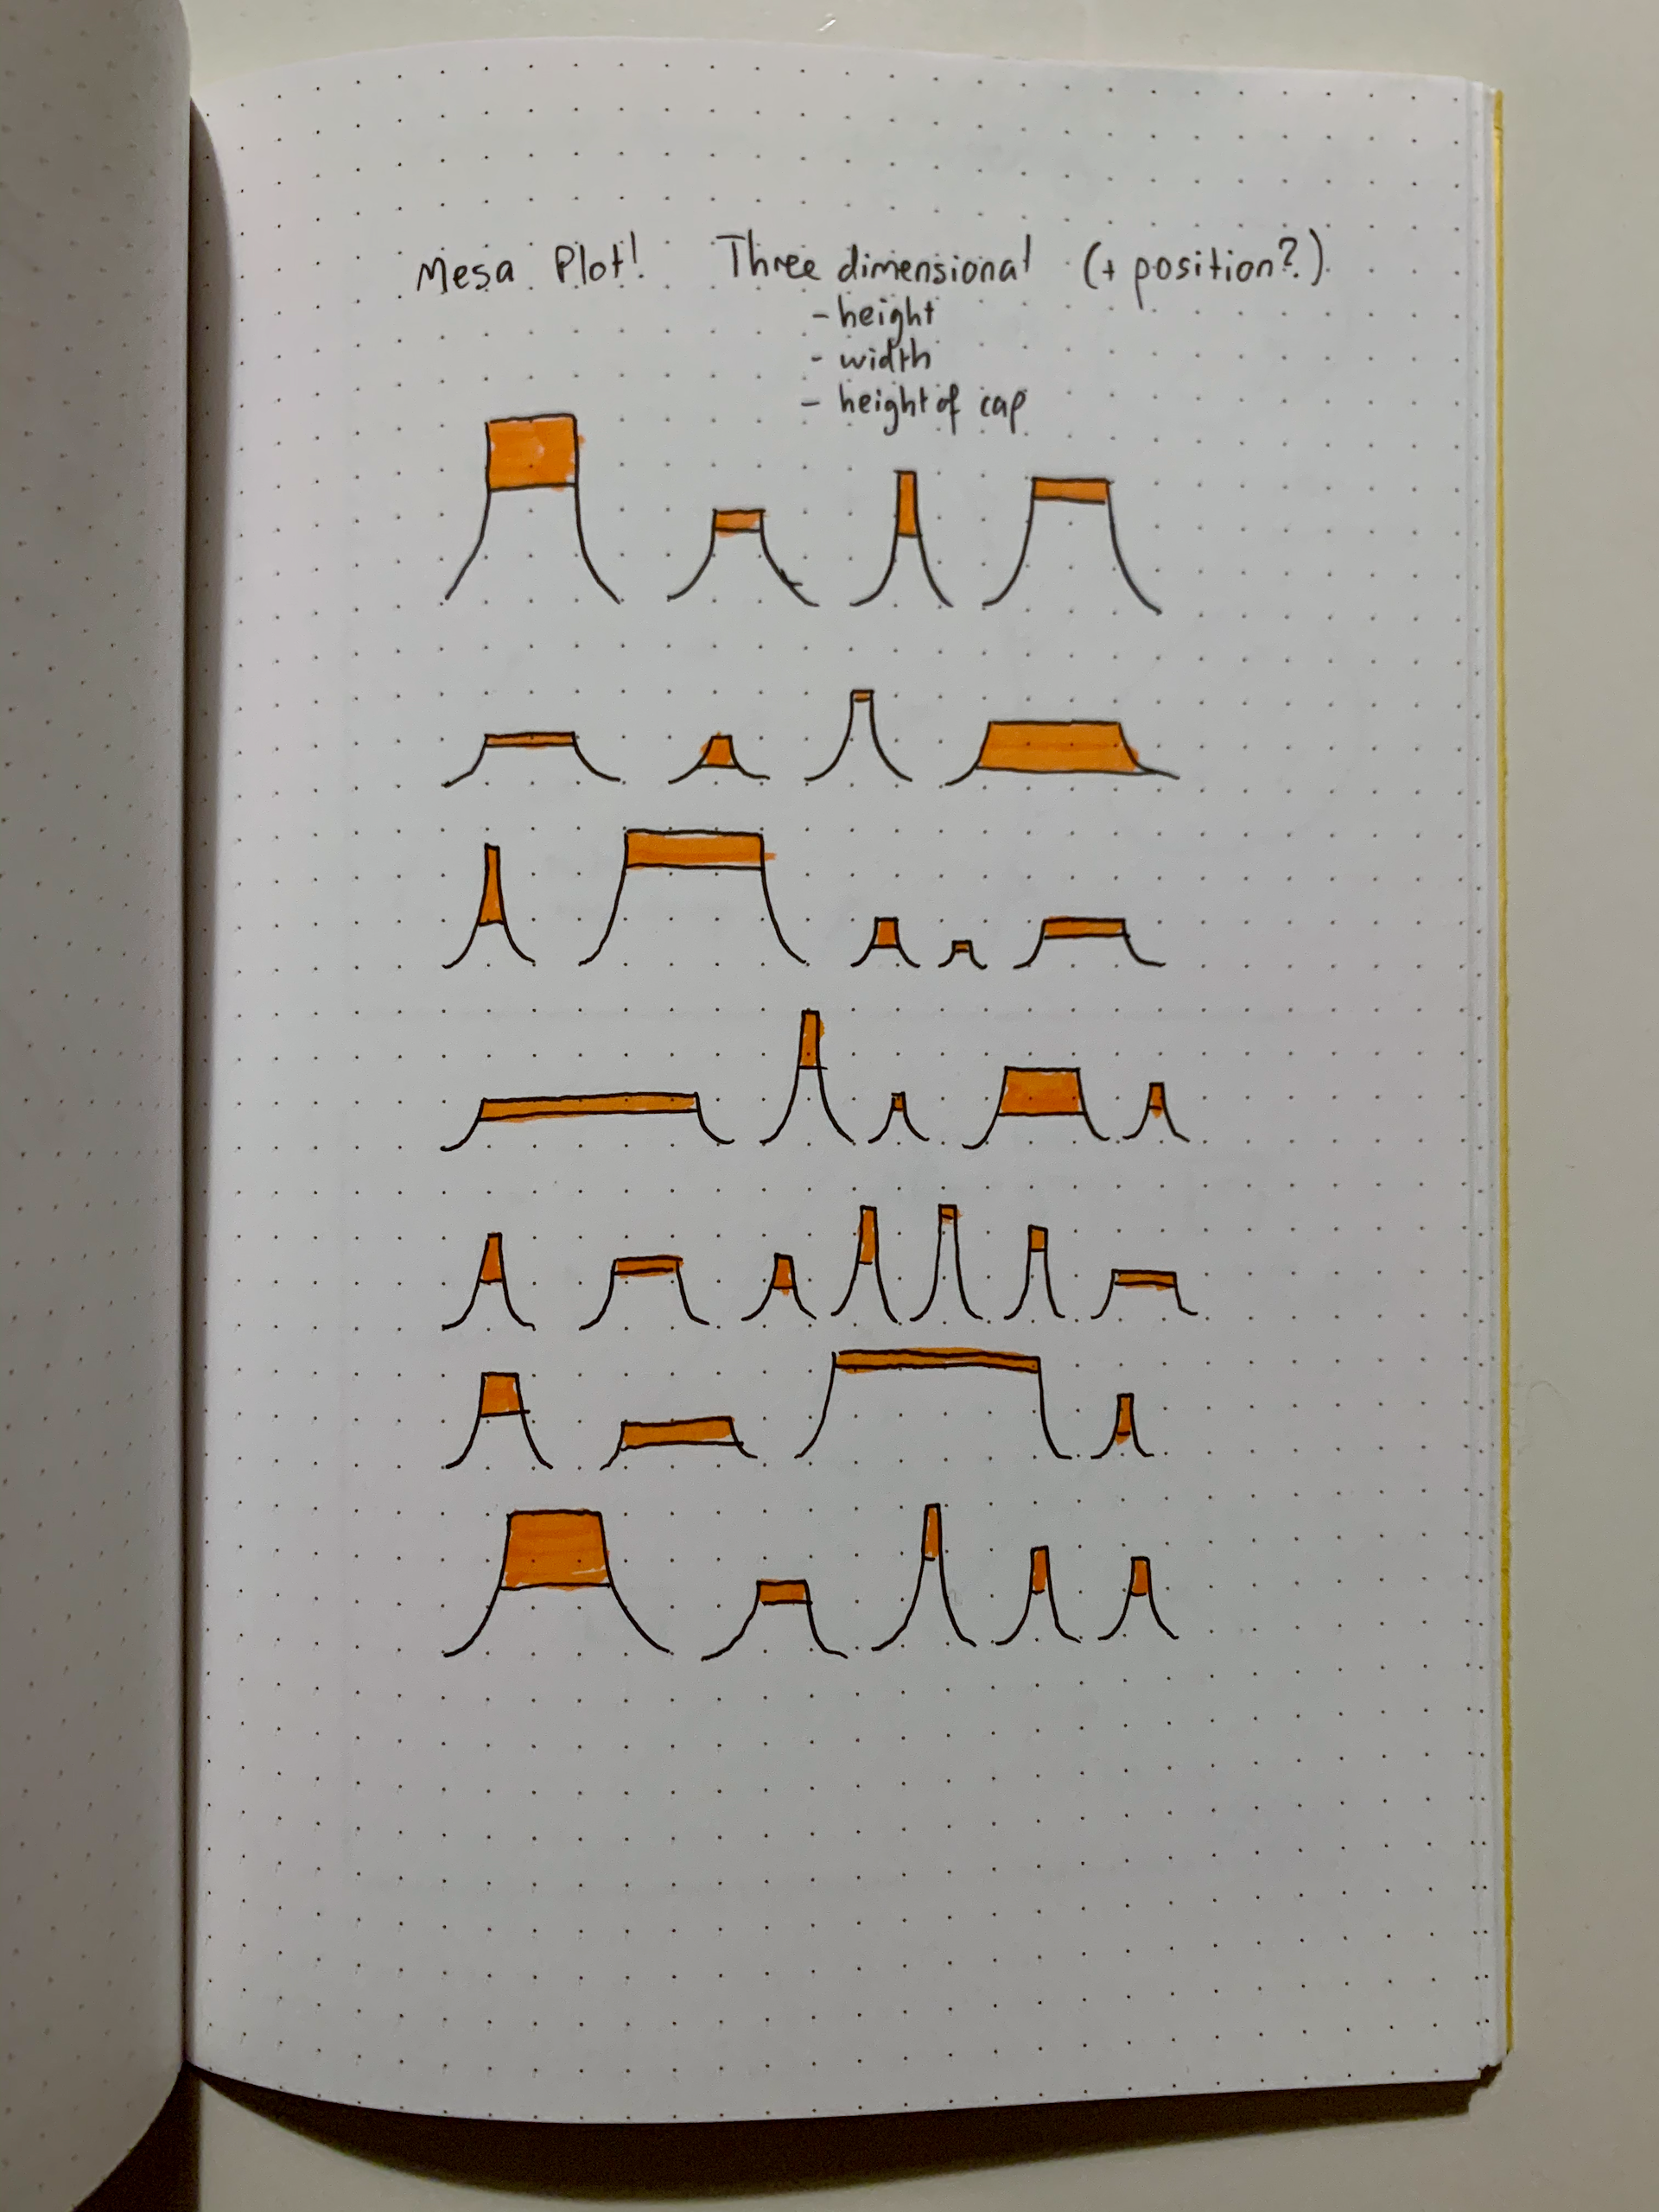 Mesa Plot! Three dimensional (+ position?)
- height
- width
- height of cap